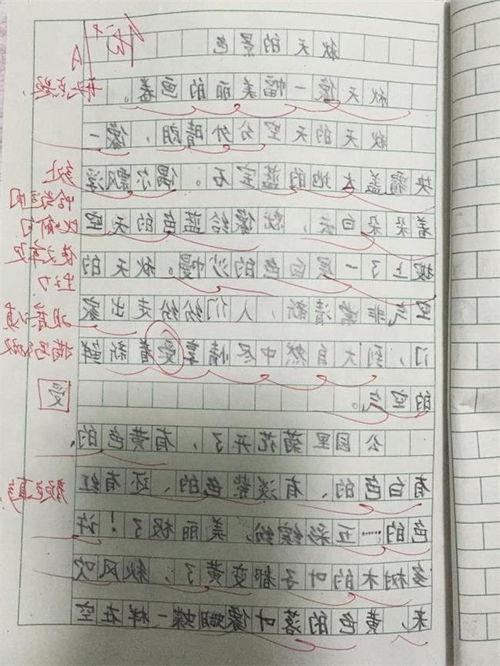 秋天的景色
秋天像一幅美丽的画卷。
秋天的天空分外晴朗，像一
块覆盖大地的蓝宝石。偶尔飘浮
着朵朵白云，就像给蓝色的天空
披上了一层白色的沙幔。秋天的
空气非常清新，人们纷纷走出家
门，到大自然中尽情享受着新鲜
的空气。
公园里菊花开了，有黄色的，
有白色的、有淡紫色的、还有红
色的……五彩缤纷，美丽极了！许
多树木的叶子都变黄了；秋风吹
来，黄色的落叶像蝴蝶一样在空
受